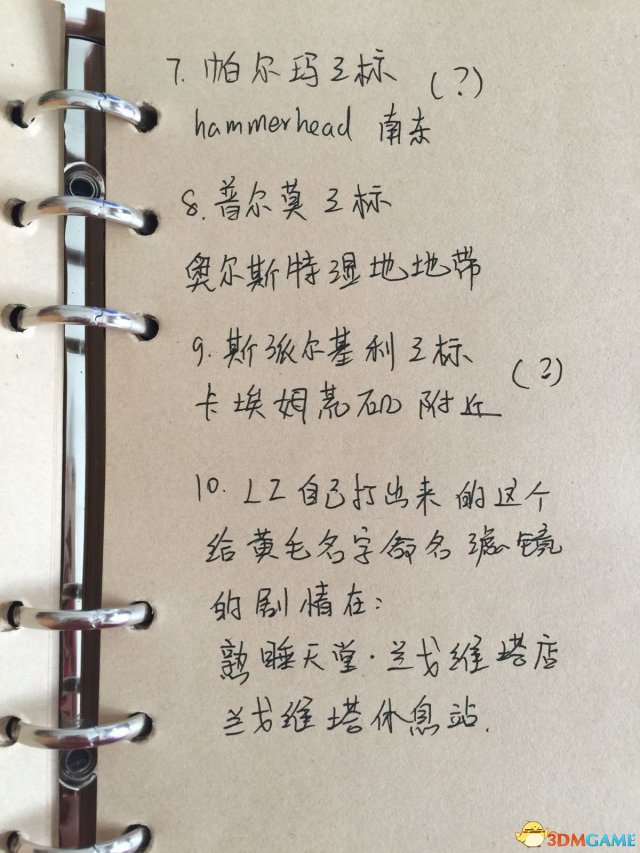 7. 帕尔玛卫标 (?)
hammerhead 南东
8. 普尔莫卫标
奥尔斯特湿地地带
9. 斯派尔基利卫标 (?)
卡埃姆荒矿附近
10. LZ自己打出来的这个
给黄毛名字命名滤镜
的剧情在:
熟睡天堂·兰戈维塔店
兰戈维塔休息站.
3DMGAME